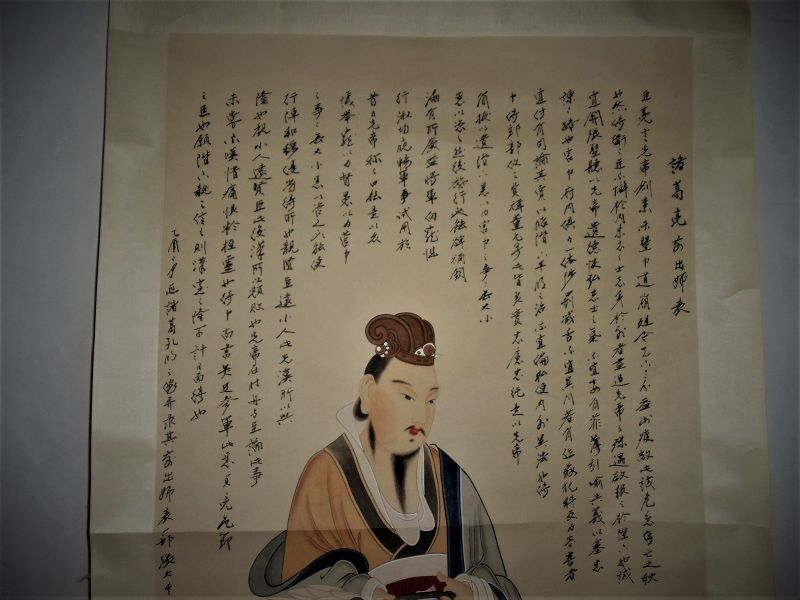 諸葛亮前出師表
臣亮言先帝創業未半中道崩殂今天下三分益州疲敝此誠危急存亡之秋
也然侍衛之臣不懈於內忠志之士忘身於外者蓋追先帝之殊遇欲報之於陛下也誠
宜開張聖聽以光先帝遺德恢弘志士之氣不宜妄自菲薄引喻失義以塞忠
諫之路也宮中府內俱為一體陟罰臧否不宜異同若有作姦犯科及為忠善者
宜付有司論其賞以昭陛下平明之治不宜偏私使內外異法也侍
中侍郎郭攸之費禕董允等此皆良實志慮忠純是以先帝
簡拔以遺陛下愚以為宮中之事事無大小
悉以咨之然後施行必能裨補闕
漏有所廣益將軍向寵性
行淑均曉暢軍事試用於
昔日先帝稱之曰能是以眾
議舉寵以為督愚以為營中
之事事無大小悉以咨之必能使
行陣和穆優劣得所也親賢臣遠小人此先漢所以興
隆也親小人遠賢臣此後漢所以傾頹也先帝在時每與臣論此事
未嘗不嘆惜痛恨於桓靈也侍中尚書長史參軍此悉貞亮死節
之臣也願陛下親之信之則漢室之隆可計日而待也
乙酉之夕 諸葛孔明之 并录其前出師表 張大千